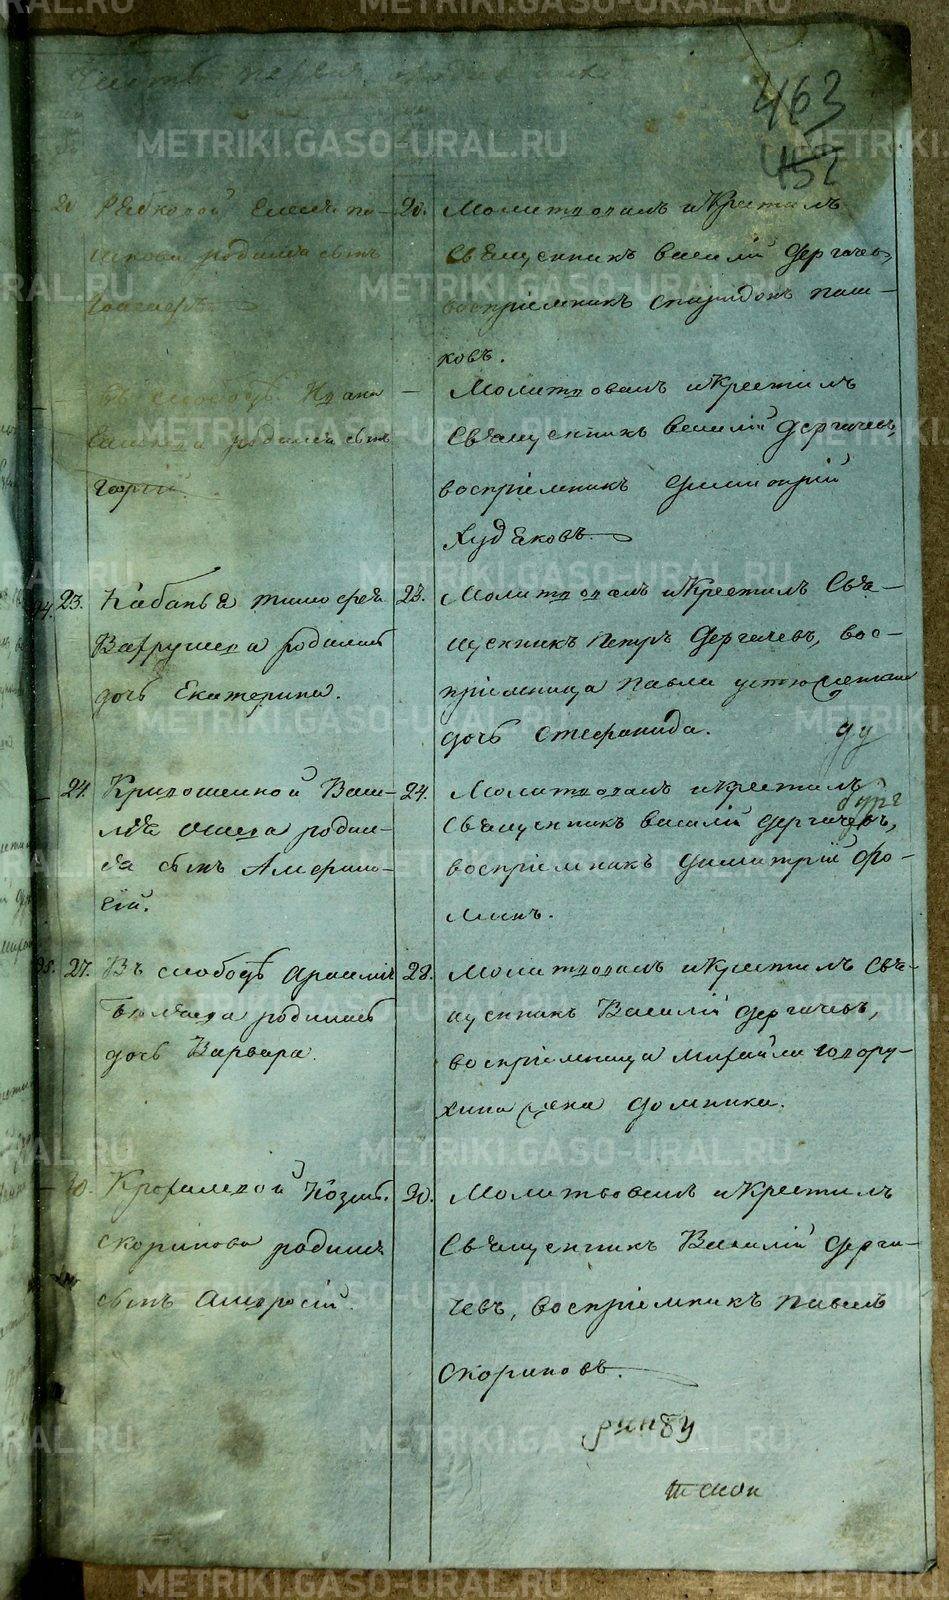 Часть первая о родившихся
463
452
20 Рябковой Елисея па-
шкова родился сынъ
20. Молитвовалъ и Крестилъ
Священникъ василий дергачевъ,
воспрiемникъ спиридонъ паш-
ковъ.
въ слободѣ Ивана
родился сынъ
Георгiй.
Молитвовалъ и Крестилъ
Священникъ василiй дергачевъ,
воспрiемникъ димитрiй
худяковъ.
94. 23. Кабанья тимофея
Вахрушева родилась
дочь Екатерина.
23. Молитвовалъ и Крестилъ Свя-
щенникъ петръ дергачевъ, вос-
прiемница павла устюжанина
дочь стефанида.
ду
24. Кривошейкой Васи-
лья родил-
ся сынъ Амфило-
гiй.
24. Молитвовалъ и крестилъ
Священникъ василiй дергачевъ,
воспрiемникъ димитрiй фо-
минъ.
95. 27. Въ слободѣ
родилась
дочь Варвара.
28. Молитвовалъ и крестилъ Свя-
щенникъ Василiй дергачевъ,
воспрiемница михайла говору-
хина жена домника.
30. Крохалевой Козмы
скорикова родился
сынъ Амвросiй.
30. Молитвовалъ и Крестилъ
Священникъ Василiй дерга-
чевъ, воспрiемникъ павелъ
скориковъ.